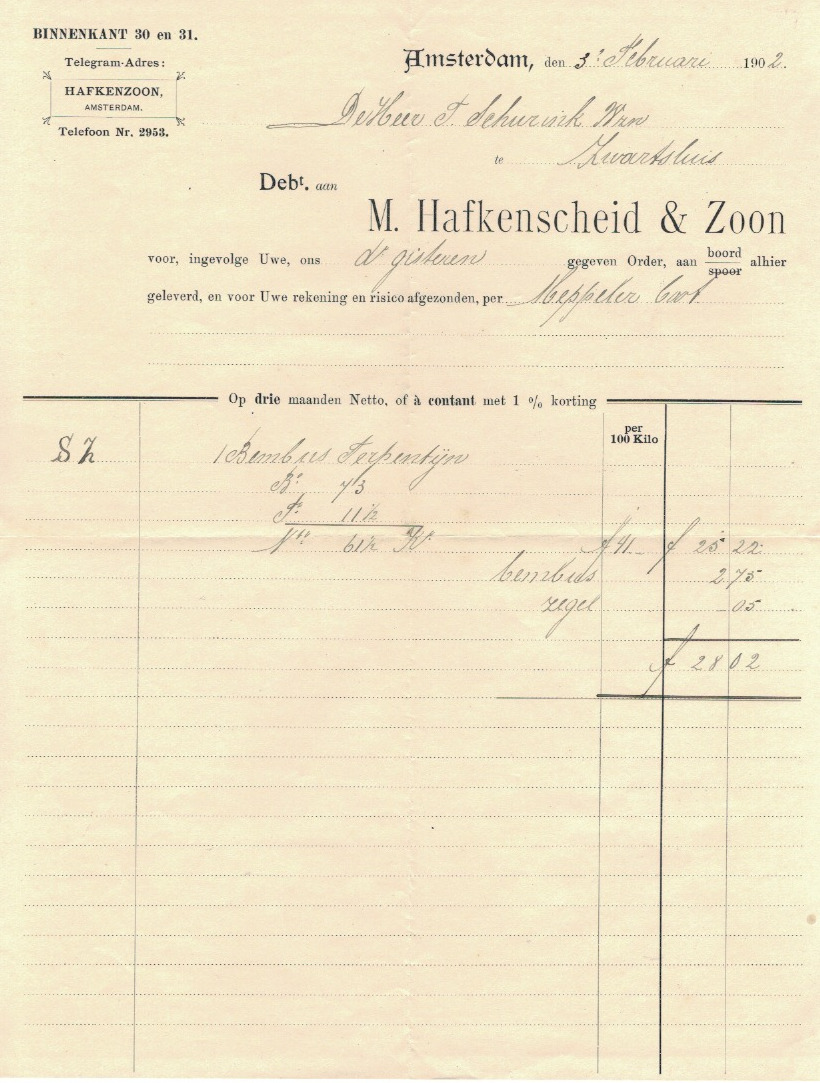 BINNENKANT 30 en 31.
Telegram-Adres:
HAFKENZOON,
AMSTERDAM.
Telefoon Nr. 2953.
Amsterdam, den 3 Februari 1902.
De Heer T. Schurink Wzn
te Zwartsluis
Debt. aan
M. Hafkenscheid & Zoon
voor, ingevolge Uwe, ons dr gisteren gegeven Order, aan boord spoor alhier
geleverd, en voor Uwe rekening en risico afgezonden, per Meppeler boot
Op drie maanden Netto, of à contant met 1 % korting
per
100 Kilo
SZ 1 Bembus Terpentijn
Bo 73
Ta 11½
Nto 61½ Ko f 41.- f 25 22
bembus 2 75
zegel - 05
f 28 02